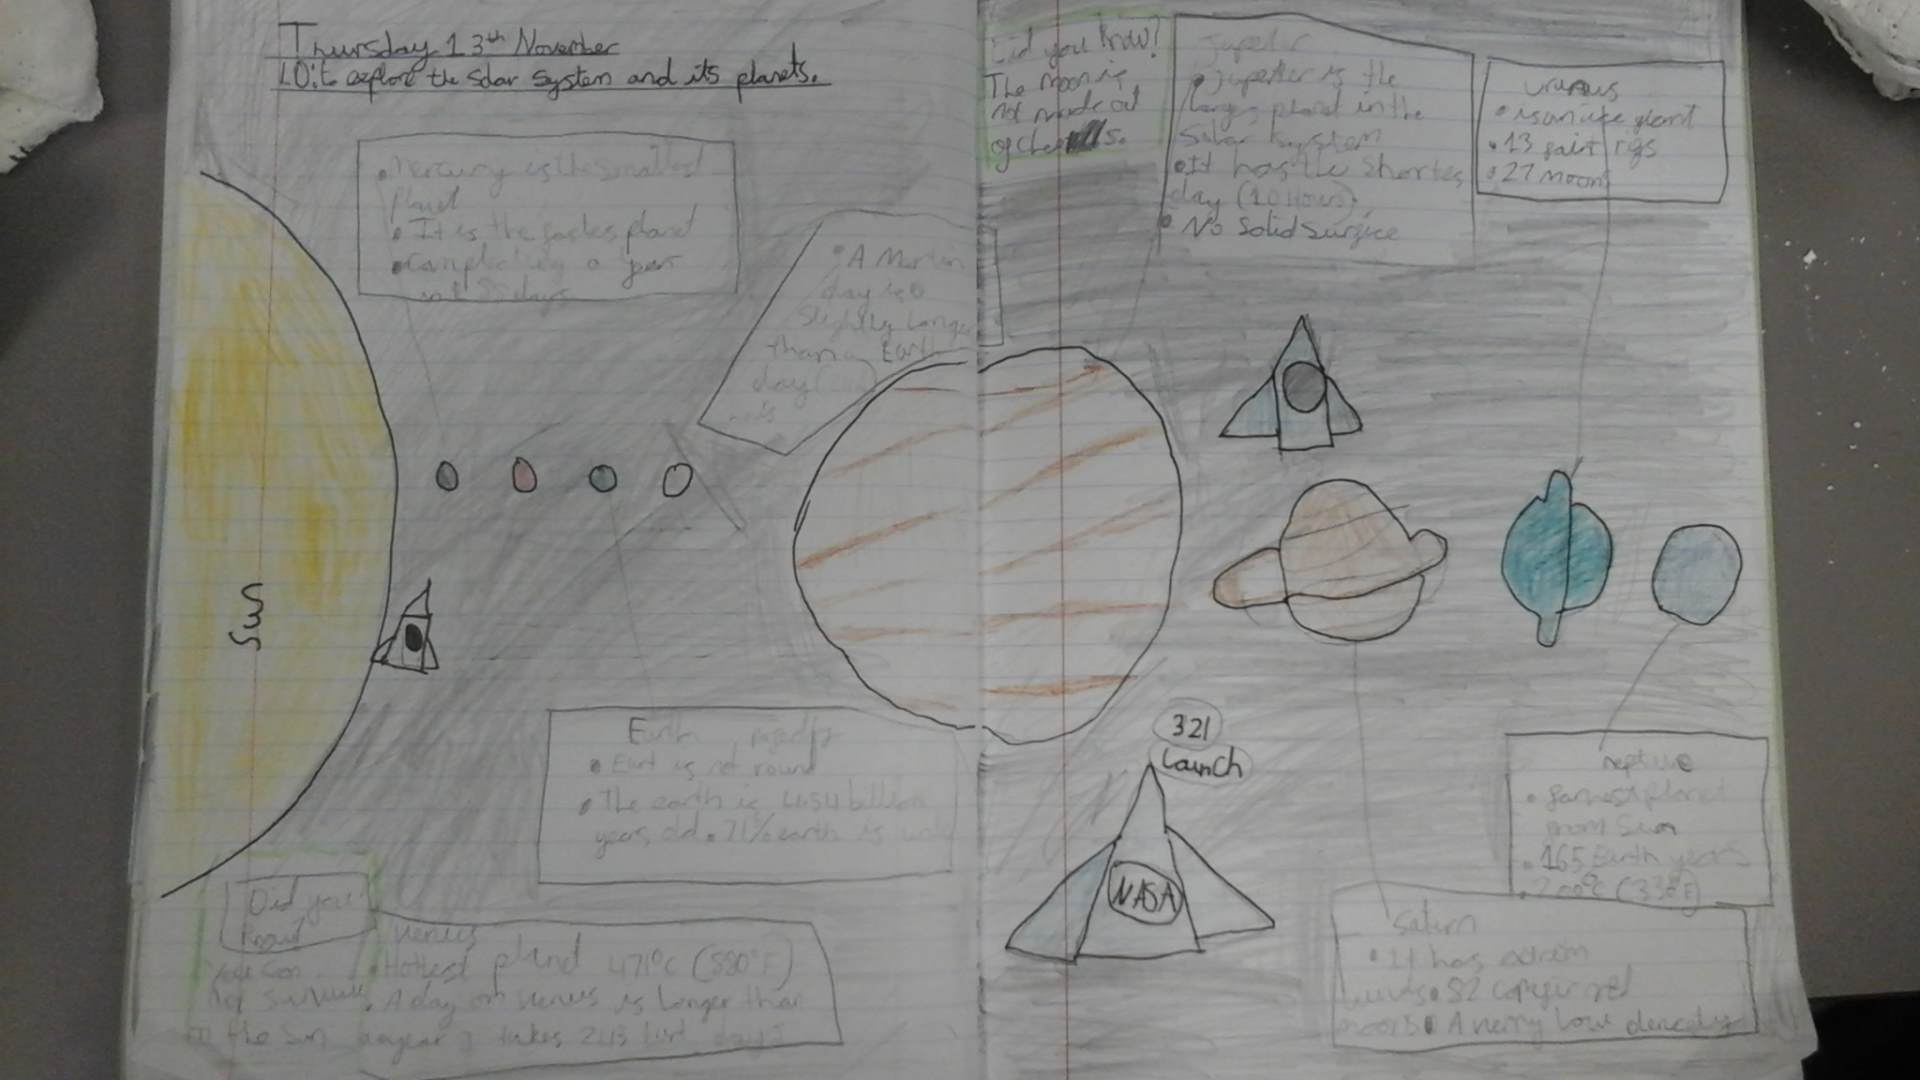 Thursday 13th November
LO: to explore the Solar System and its planets.
• Mercury is the smallest
planet
• It is the fastes planet
• Completing a year
88 days
• A Martin
day is
slightly longer
than Earth
day
Sun
Earth
• Eart is not round
• The earth is 4.54 billion
years old • 71% earth is
Did you
know
you can
not survive
on the sun
Venus
• Hottest planet 471°C (880°F)
• A day on Venus is longer than
a year takes 243 days
Did you know?
The moon is
not made out
of
Jupeter
• Jupeter is the
planet in the
Solar System
• It has the shortes
day (10 Hours)
• No Solid Surface
uranus
• is an ice giant
• 13 faint rigs
• 27 moons
321
Launch
NASA
neptune
• planet
from Sun
• 165 Earth years
• 200°C (
Saturn
• It has
• 82
moons • A very low